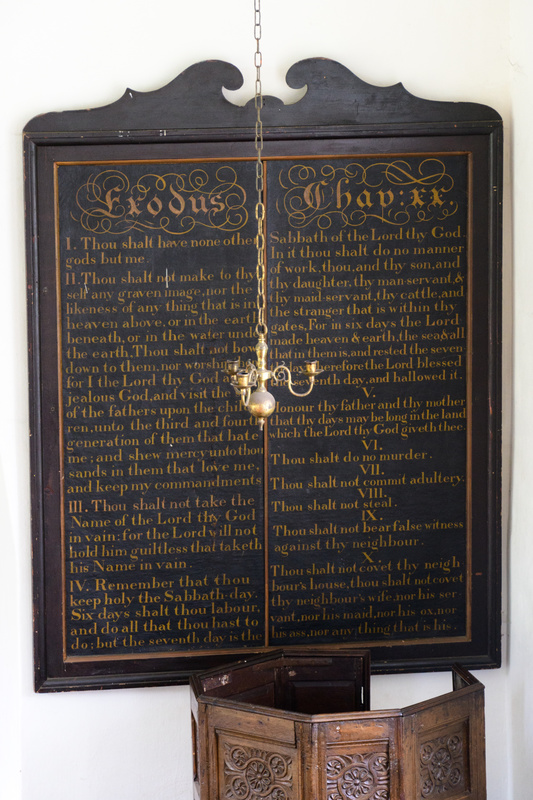 Exodus
I. Thou shalt have none other
gods but me.
II. Thou shalt not make to thy
self any graven image, nor the
likeness of any thing that is in
heaven above, or in the earth
beneath, or in the water unde
the earth, Thou shalt not bow
down to them, nor worship
for I the Lord thy God a
jealous God, and visit the
of the fathers upon the chil
ren, unto the third and fourth
generation of them that hate
me; and shew mercy unto thou
sands in them that love me,
and keep my commandments
III. Thou shalt not take the
Name of the Lord thy God
in vain: for the Lord will not
hold him guiltless that taketh
his Name in vain.
IV. Remember that thou
keep holy the Sabbath-day.
Six days shalt thou labour,
and do all that thou hast to
do; but the seventh day is the
Chap: xx.
Sabbath of the Lord thy God.
In it thou shalt do no manner
of work, thou, and thy son, and
thy daughter, thy man-servant, &
thy maid-servant, thy cattle, and
the stranger that is within thy
gates, For in six days the Lord
made heaven & earth, the sea & all
that in them is, and rested the seven
day, wherefore the Lord blessed
the seventh day, and hallowed it.
V.
Honour thy father and thy mother
that thy days may be long in the land
which the Lord thy God giveth thee.
VI.
Thou shalt do no murder.
VII.
Thou shalt not commit adultery.
VIII.
Thou shalt not steal.
IX.
Thou shalt not bear false witness
against thy neighbour.
X.
Thou shalt not covet thy neigh
bour's house, thou shalt not covet
thy neighbour's wife, nor his ser-
vant, nor his maid, nor his ox, nor
his ass, nor any thing that is his.